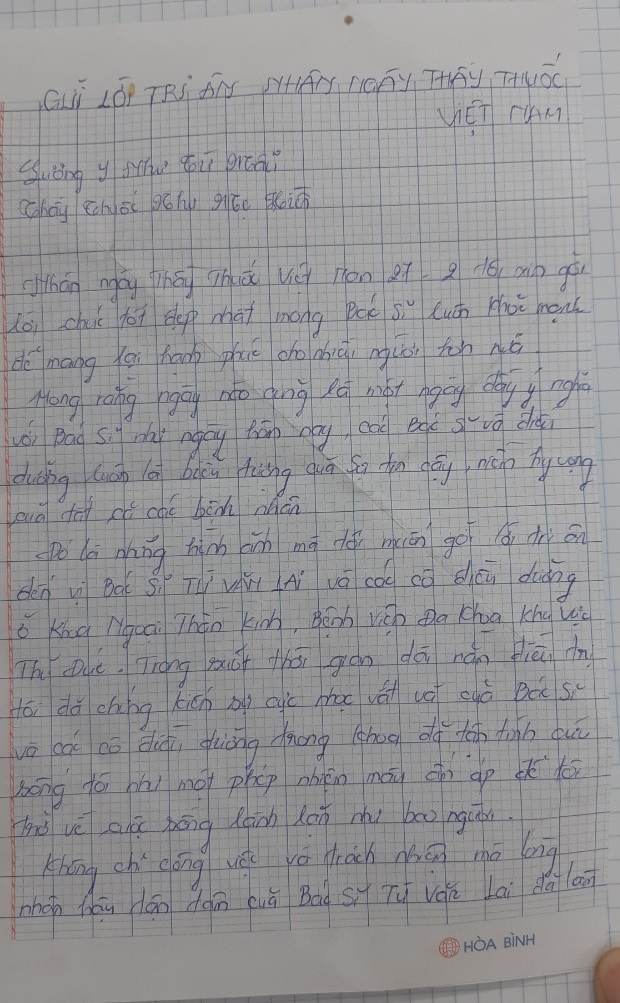 GỬI LỜI TRI ÂN NHÂN NGÀY THẦY THUỐC
VIỆT NAM
Lương y như từ mẫu
Thầy thuốc như mẹ hiền
Nhân ngày Thầy Thuốc Việt Nam 27 - 2 tôi xin gởi
lời chúc tốt đẹp nhất mong Bác Sĩ luôn khỏe mạnh
để mang lại hạnh phúc cho nhiều người hơn nữa.
Mong rằng ngày nào cũng là một ngày đầy ý nghĩa
với Bác Sĩ như ngày hôm nay, các Bác Sĩ và điều
dưỡng luôn là biểu tượng của sự tin cậy, niềm hy vọng
của tất cả các bệnh nhân
Đó là những hình ảnh mà tôi muốn gởi lời tri ân
đến vị Bác Sĩ TỪ VĂN LAI và các cô điều dưỡng
ở Khoa Ngoại Thần Kinh, Bệnh Viện Đa Khoa Khu Vực
Thủ Đức. Trong suốt thời gian dài nằm điều trị
tôi đã chứng kiến sự cực nhọc vất vả của Bác Sĩ
và các cô điều dưỡng trong khoa đã tận tình cứu
sống tôi như một phép nhiệm mầu ấm áp để tôi
trở về cuộc sống lành lặn như bao người.
Không chỉ công việc và trách nhiệm mà lòng
nhân hậu tận tâm của Bác Sĩ Từ Văn Lai đã làm
HÒA BÌNH